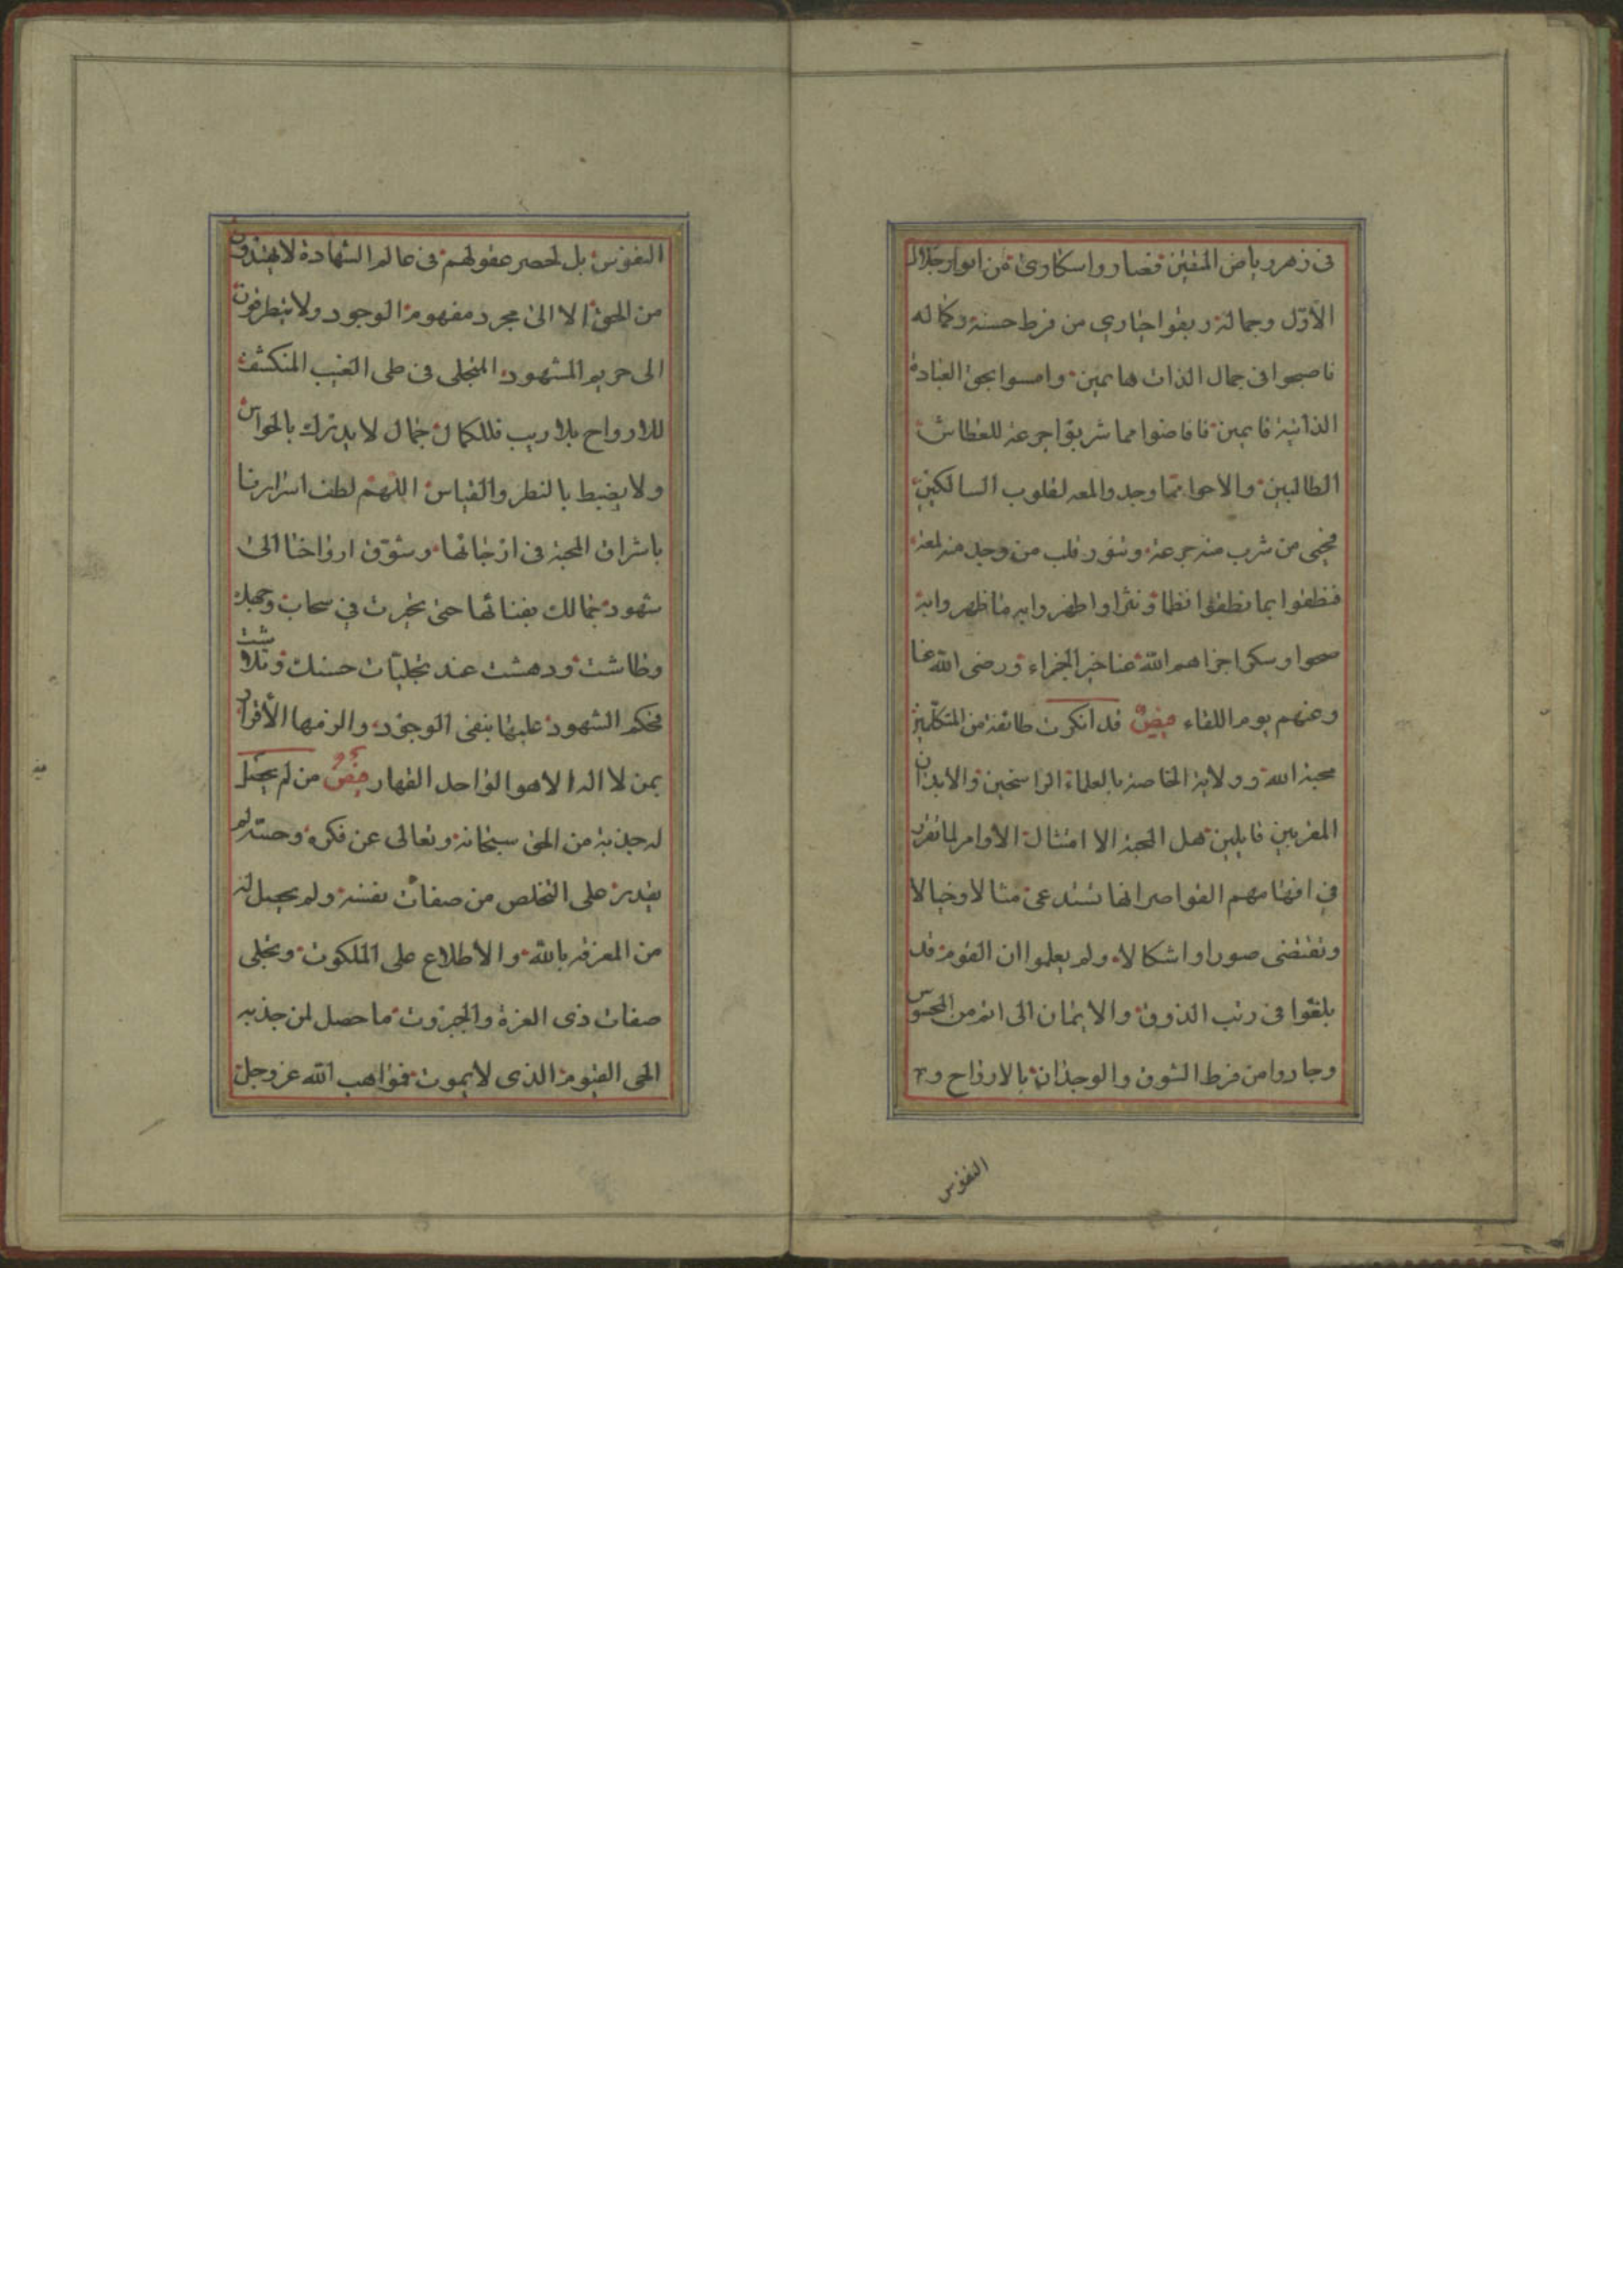 فى زهر رياض اليقين فصاروا سكارى من انوار جلال
الأوّل وجماله وبقوا حيارى من فرط حسنه وكماله
فاصبحوا فى جمال الذات هايمين وامسوا بحق العبادة
الذاتية قايمين فافاضوا مما شربوا جرعة للعطاش
الطالبين والاحوا مما وجدوا لمعه لقلوب السالكين
فحيى من شرب منه جرعة وتنور قلب من وجد منه لمعة
فنطقوا بما نطقوا نظما ونثرا واظهروا به ما ظهروا به
صحوا وسكرا جزاهم الله عنا خير الجزاء ورضى الله عنا
وعنهم يوم اللقاء فيض قد انكرت طائفة من المتكلمين
محبة الله وولايته الخاصة بالعلماء الراسخين والابدان
المقربين قايلين هل المحبة الا امتثال الأوامر لما تقرر
في افهامهم القواصر انها تستدعى مثالا وخيالا
وتقتضى صورا واشكالا ولم يعلموا ان القوم قد
بلغوا فى رتب الذوق والايمان الى اتم من المحسوس
وجادوا من فرط الشوق والوجدان بالارواح و
النفوس
النفوس بل لحصر عقولهم فى عالم الشهادة لا يهتدون
من الحق الا الى مجرد مفهوم الوجود ولا يتطرفون
الى حريم المشهود المتجلى فى طى الغيب المنكشف
للارواح بلا ريب فللكمال جمال لا يدرك بالحواس
ولا يضبط بالنظر والقياس اللهم لطف اسرارنا
باشراق المحبة فى ارجائها وشوق ارواحنا الى
شهود جمالك بفنائها حتى تحيرت في سحاب وجهك
وطاشت ودهشت عند تجليات حسنك وتلاشت
فحكم الشهود عليها بنفى الوجود والزمها الأقرار
بمن لا اله الا هو الواحد القهار فيض من لم يحصل
له جذبة من الحق سبحانه وتعالى عن فكره وحسّه لم
يقدر على التخلص من صفات نفسه ولم يحصل له
من المعرفه بالله والأطلاع على الملكوت وتجلى
صفات ذى العزة والجبروت ما حصل لمن جذبه
الحى القيوم الذى لا يموت فمواهب الله عز وجل